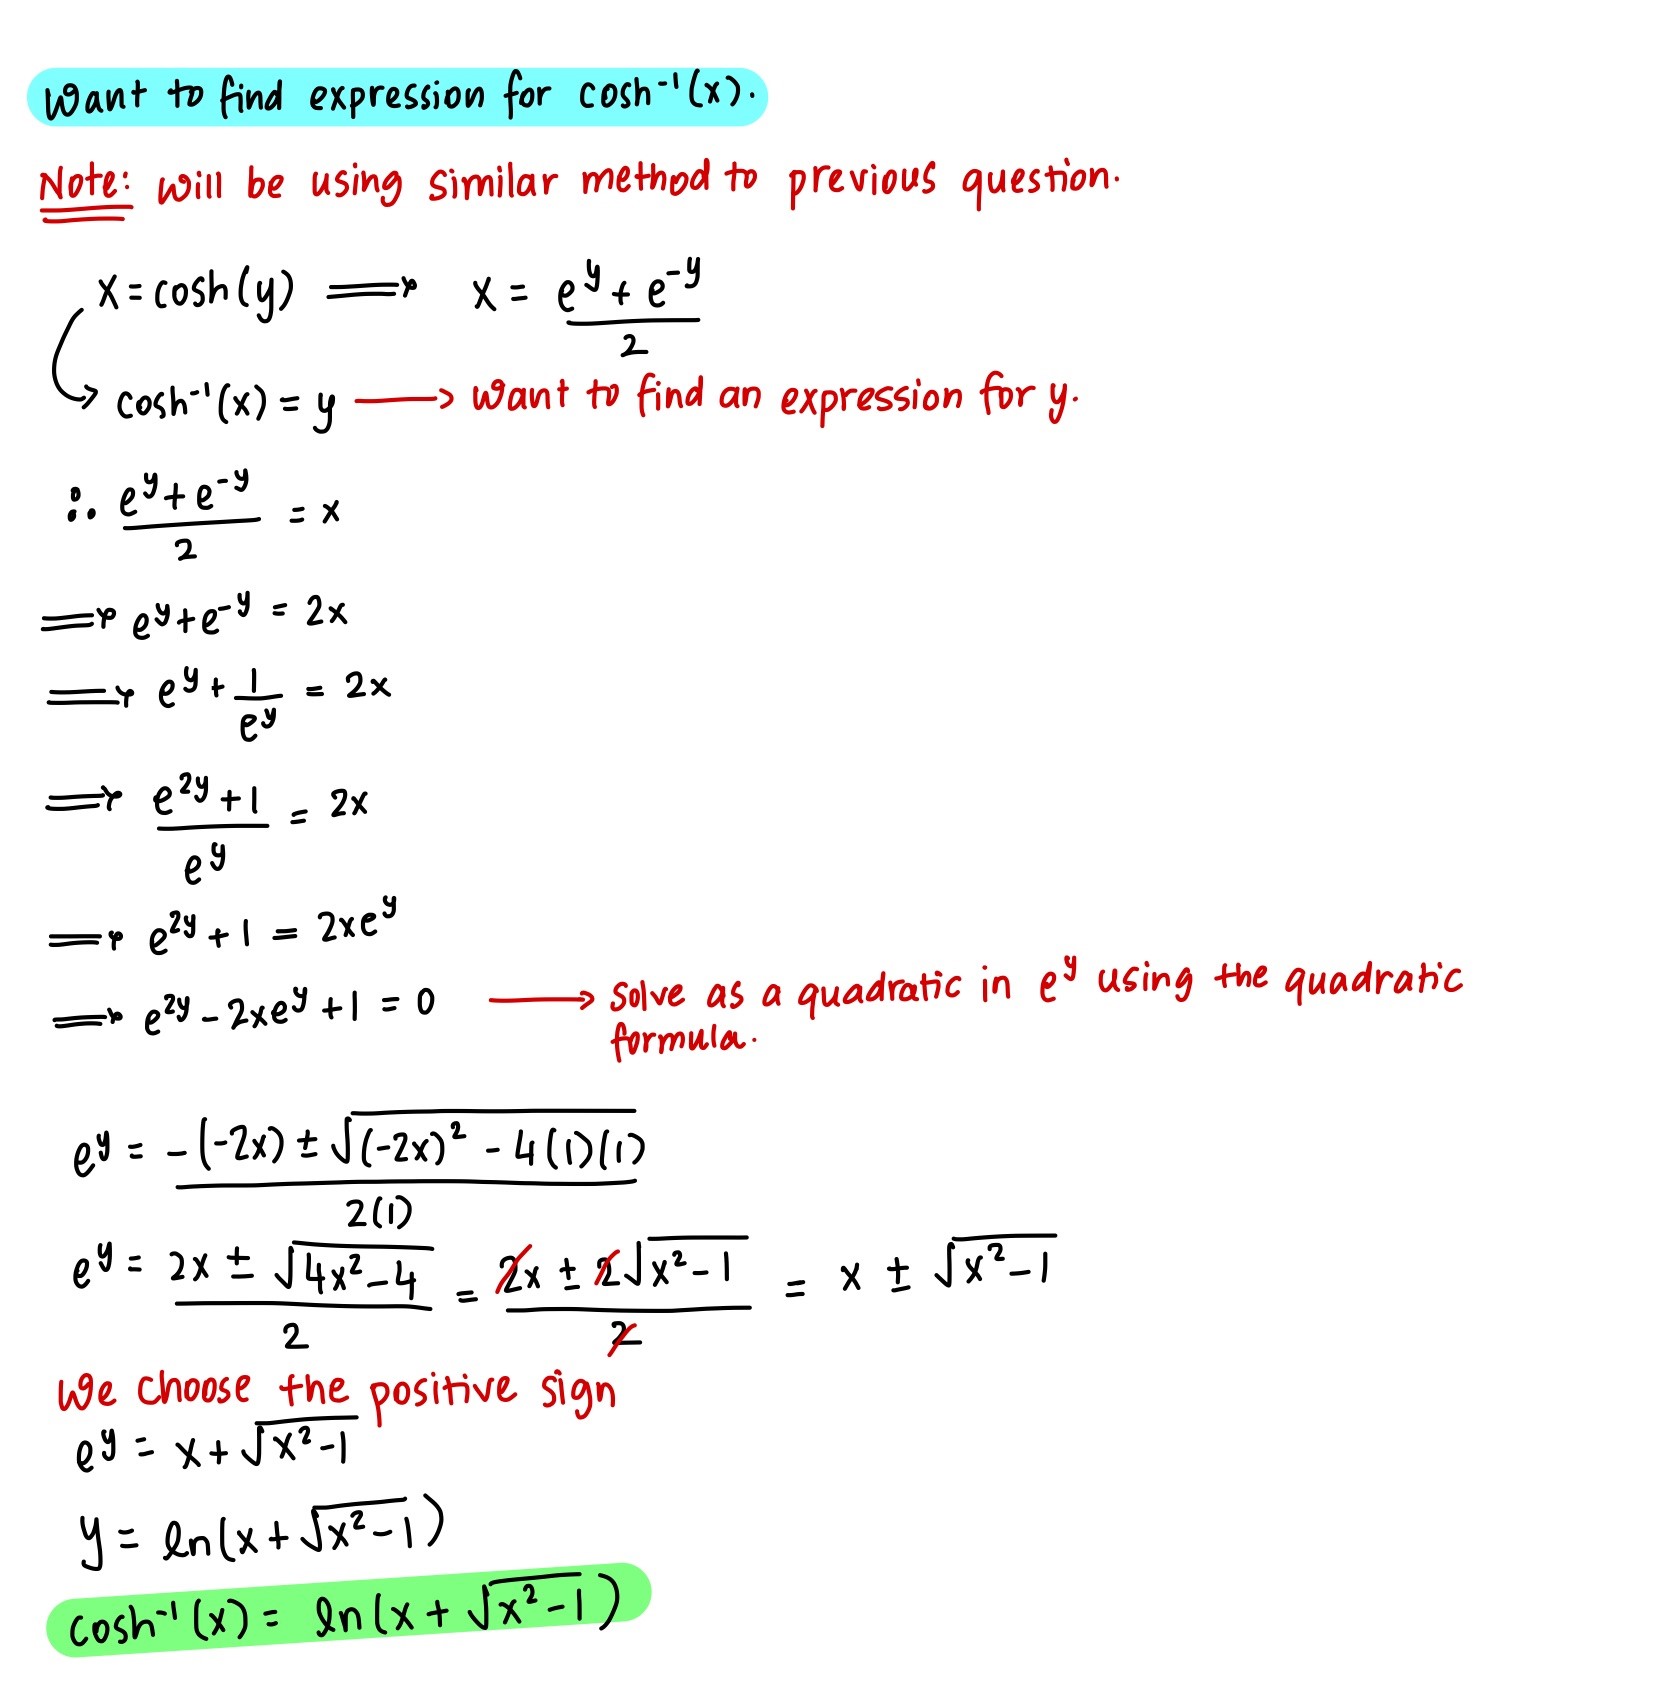 Want to find expression for cosh⁻¹(x).
Note: will be using similar method to previous question.
x = cosh(y) ⟹ x = (e^y + e^-y)/2
cosh⁻¹(x) = y → want to find an expression for y.
∴ (e^y + e^-y)/2 = x
⟹ e^y + e^-y = 2x
⟹ e^y + 1/e^y = 2x
⟹ (e^2y + 1)/e^y = 2x
⟹ e^2y + 1 = 2xe^y
⟹ e^2y - 2xe^y + 1 = 0 → solve as a quadratic in e^y using the quadratic
formula.
e^y = (-(-2x) ± √((-2x)² - 4(1)(1)))/2(1)
e^y = (2x ± √(4x² - 4))/2 = (2x ± 2√(x² - 1))/2 = x ± √(x² - 1)
We choose the positive sign
e^y = x + √(x² - 1)
y = ln(x + √(x² - 1))
cosh⁻¹(x) = ln(x + √(x² - 1))